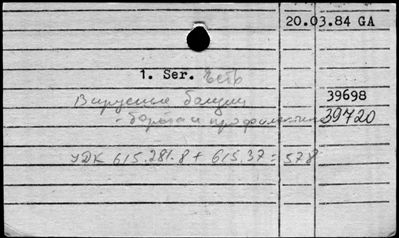 20.03.84 GA
1. Ser. Есть
Вирусные болезни 39698
- борьба и профилактика 39720
УДК 615.281.8 + 615.37 = 578